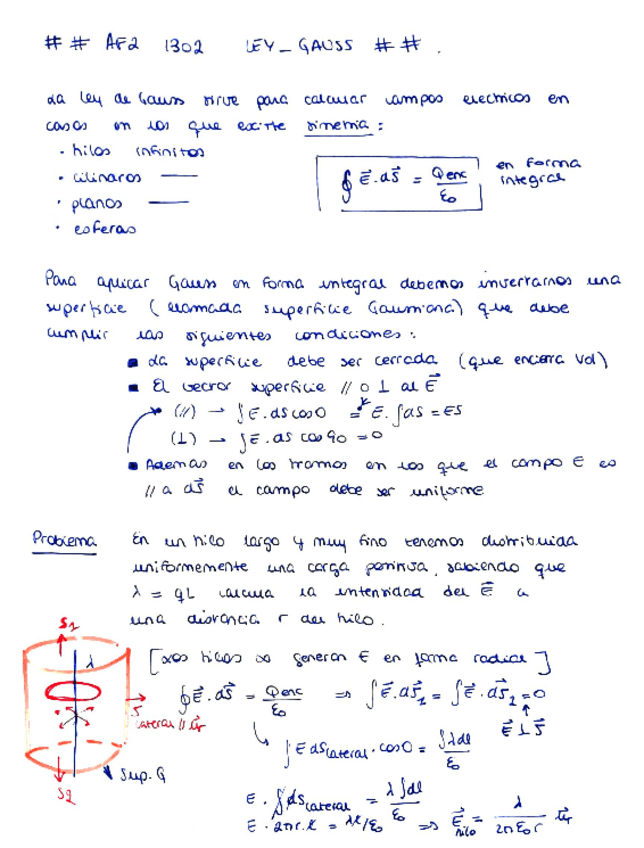 # # AF2 1302 LEY_GAUSS # # .
La ley de Gauss sirve para calcular campos electricos en
casos en los que existe simetria :
· hilos infinitos
· cilindros ——
· planos ——
· esferas
∮ E⃗ . dS⃗ = Qenc / ε₀
en forma
integral
Para aplicar Gauss en forma integral debemos inventarnos una
superficie ( llamada superficie Gaussiana) que debe
cumplir las siguientes condiciones :
▪ La superficie debe ser cerrada (que encierra Vol)
▪ El vector superficie // o ⊥ al E⃗
(//) → ∫ E . ds cos 0 = E . ∫ ds = ES
(⊥) → ∫ E . ds cos 90 = 0
▪ Ademas en los tramos en los que el campo E es
// a dS⃗ el campo debe ser uniforme
Problema En un hilo largo y muy fino tenemos distribuida
uniformemente una carga positiva, sabiendo que
λ = qL calcula la intensidad del E⃗ a
una distancia r del hilo.
[ Los hilos ∞ generan E en forma radial ]
S1
λ
S
lateral // u⃗r
S2
Sup. G
∮ E⃗ . dS⃗ = Qenc / ε₀ ⇒ ∫ E⃗ . dS⃗₁ = ∫ E⃗ . dS⃗₂ = 0
E⃗ ⊥ S⃗
∫ E ds lateral . cos 0 = ∫ λ dl / ε₀
E . ∫∫ ds lateral = λ ∫ dl / ε₀
E . 2πr . l = λl / ε₀ ⇒ E⃗ hilo = λ / 2πε₀r u⃗r